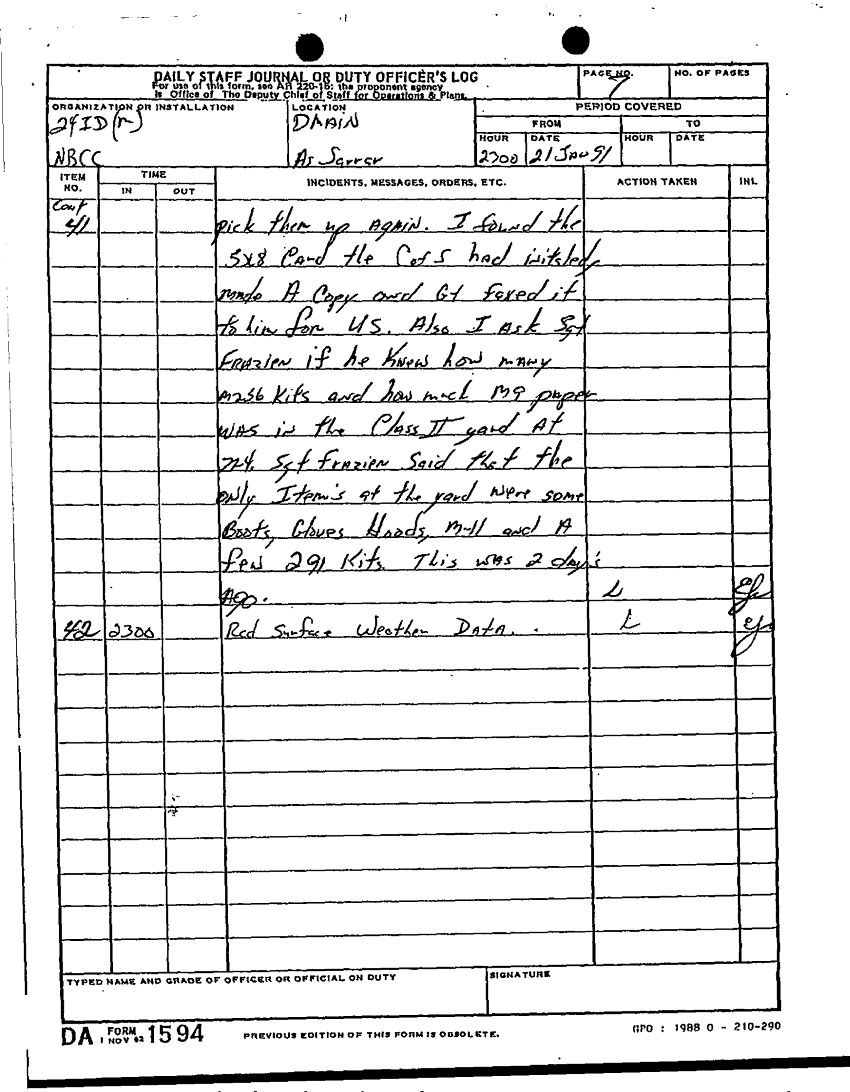 DAILY STAFF JOURNAL OR DUTY OFFICER'S LOG
For use of this form, see AR 220-15; the proponent agency
is Office of The Deputy Chief of Staff for Operations & Plans.
PAGE NO.
7
NO. OF PAGES
ORGANIZATION OR INSTALLATION
24ID(m)
NBCC
LOCATION
DMAIN
As Sarrar
PERIOD COVERED
FROM
TO
HOUR
DATE
HOUR
DATE
2300
21 JAN 91
ITEM NO.
TIME
IN
OUT
INCIDENTS, MESSAGES, ORDERS, ETC.
ACTION TAKEN
INL
Cont
41
pick them up AgAiN. I found the
5x8 Card the CofS had initaled,
made A Copy and G4 faxed it
to him for US. Also I Ask Sgt
FRAzier if he Knew how mANy
M256 Kits and how much M9 paper
WAS in the Class II yard At
724. Sgt Frazier Said that the
only Item's at the yard were some
Boots, Gloves Hoods, M-11 and A
few 291 Kits. This was 2 day's
Ago.
L
42
2300
Rcd Surface Weather DATA.
L
TYPED NAME AND GRADE OF OFFICER OR OFFICIAL ON DUTY
SIGNATURE
DA FORM 1594
1 NOV 62
PREVIOUS EDITION OF THIS FORM IS OBSOLETE.
GPO : 1988 O - 210-290